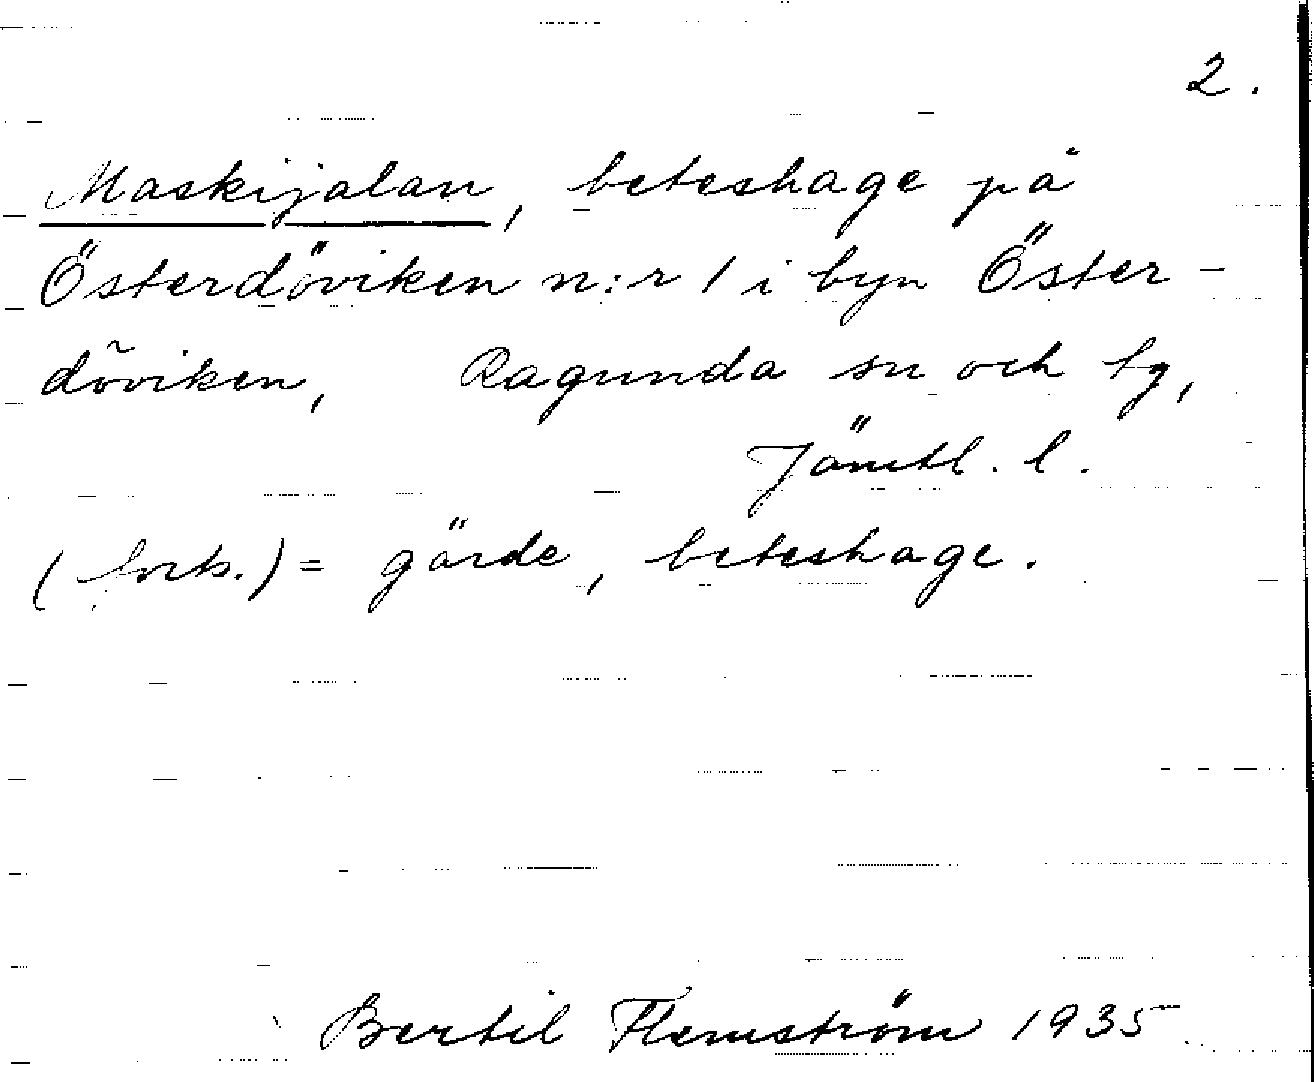 2.
Maskijalan, beteshage på
Österdöviken n:r 1 i byn Öster-
döviken, Ragunda sn och tg,
Jämtl. l.
(forts.) = gärde, beteshage.
Bertil Flemström 1935